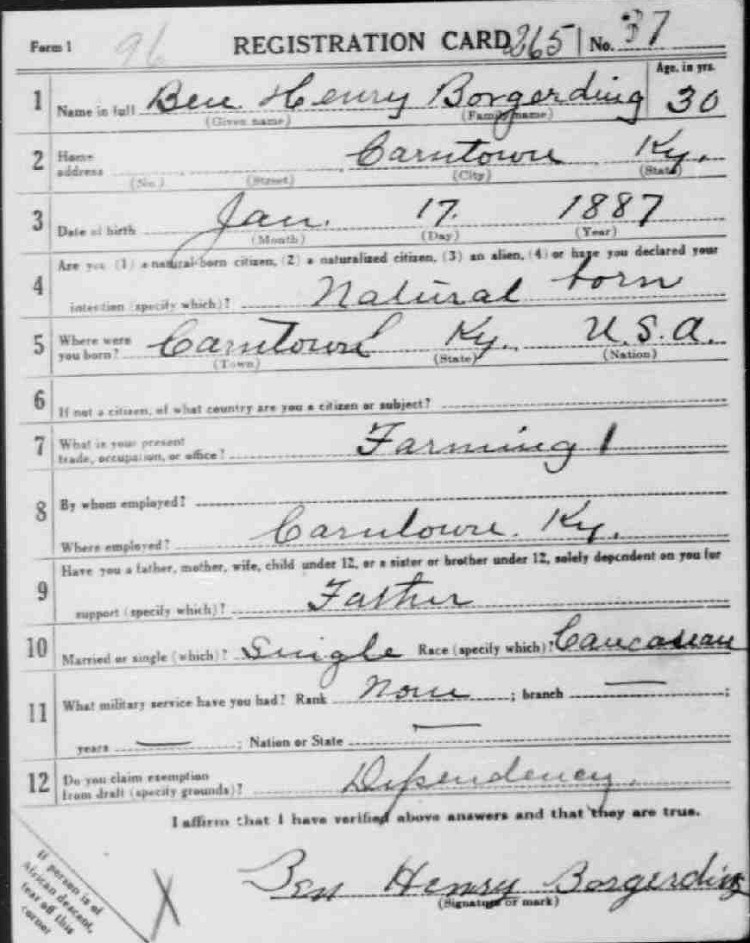 Form 1 96 REGISTRATION CARD 2651 No. 37
1 Name in full Ben Henry Borgerding Age, in yrs. 30
(Given name) (Family name)
2 Home address Carntown Ky.
(No.) (Street) (City) (State)
3 Date of birth Jan. 17. 1887
(Month) (Day) (Year)
4 Are you (1) a natural-born citizen, (2) a naturalized citizen, (3) an alien, (4) or have you declared your
intention (specify which)? Natural born
5 Where were you born? Carntown Ky. U.S.A.
(Town) (State) (Nation)
6 If not a citizen, of what country are you a citizen or subject?
7 What is your present trade, occupation, or office? Farming 1
8 By whom employed?
Where employed? Carntown. Ky.
9 Have you a father, mother, wife, child under 12, or a sister or brother under 12, solely dependent on you for
support (specify which)? Father
10 Married or single (which)? Single Race (specify which)? Caucasian
11 What military service have you had? Rank None ; branch — ;
years — ; Nation or State —
12 Do you claim exemption from draft (specify grounds)? Dependency.
I affirm that I have verified above answers and that they are true.
Ben Henry Borgerding
(Signature or mark)
If person is of
African descent,
tear off this
corner
X